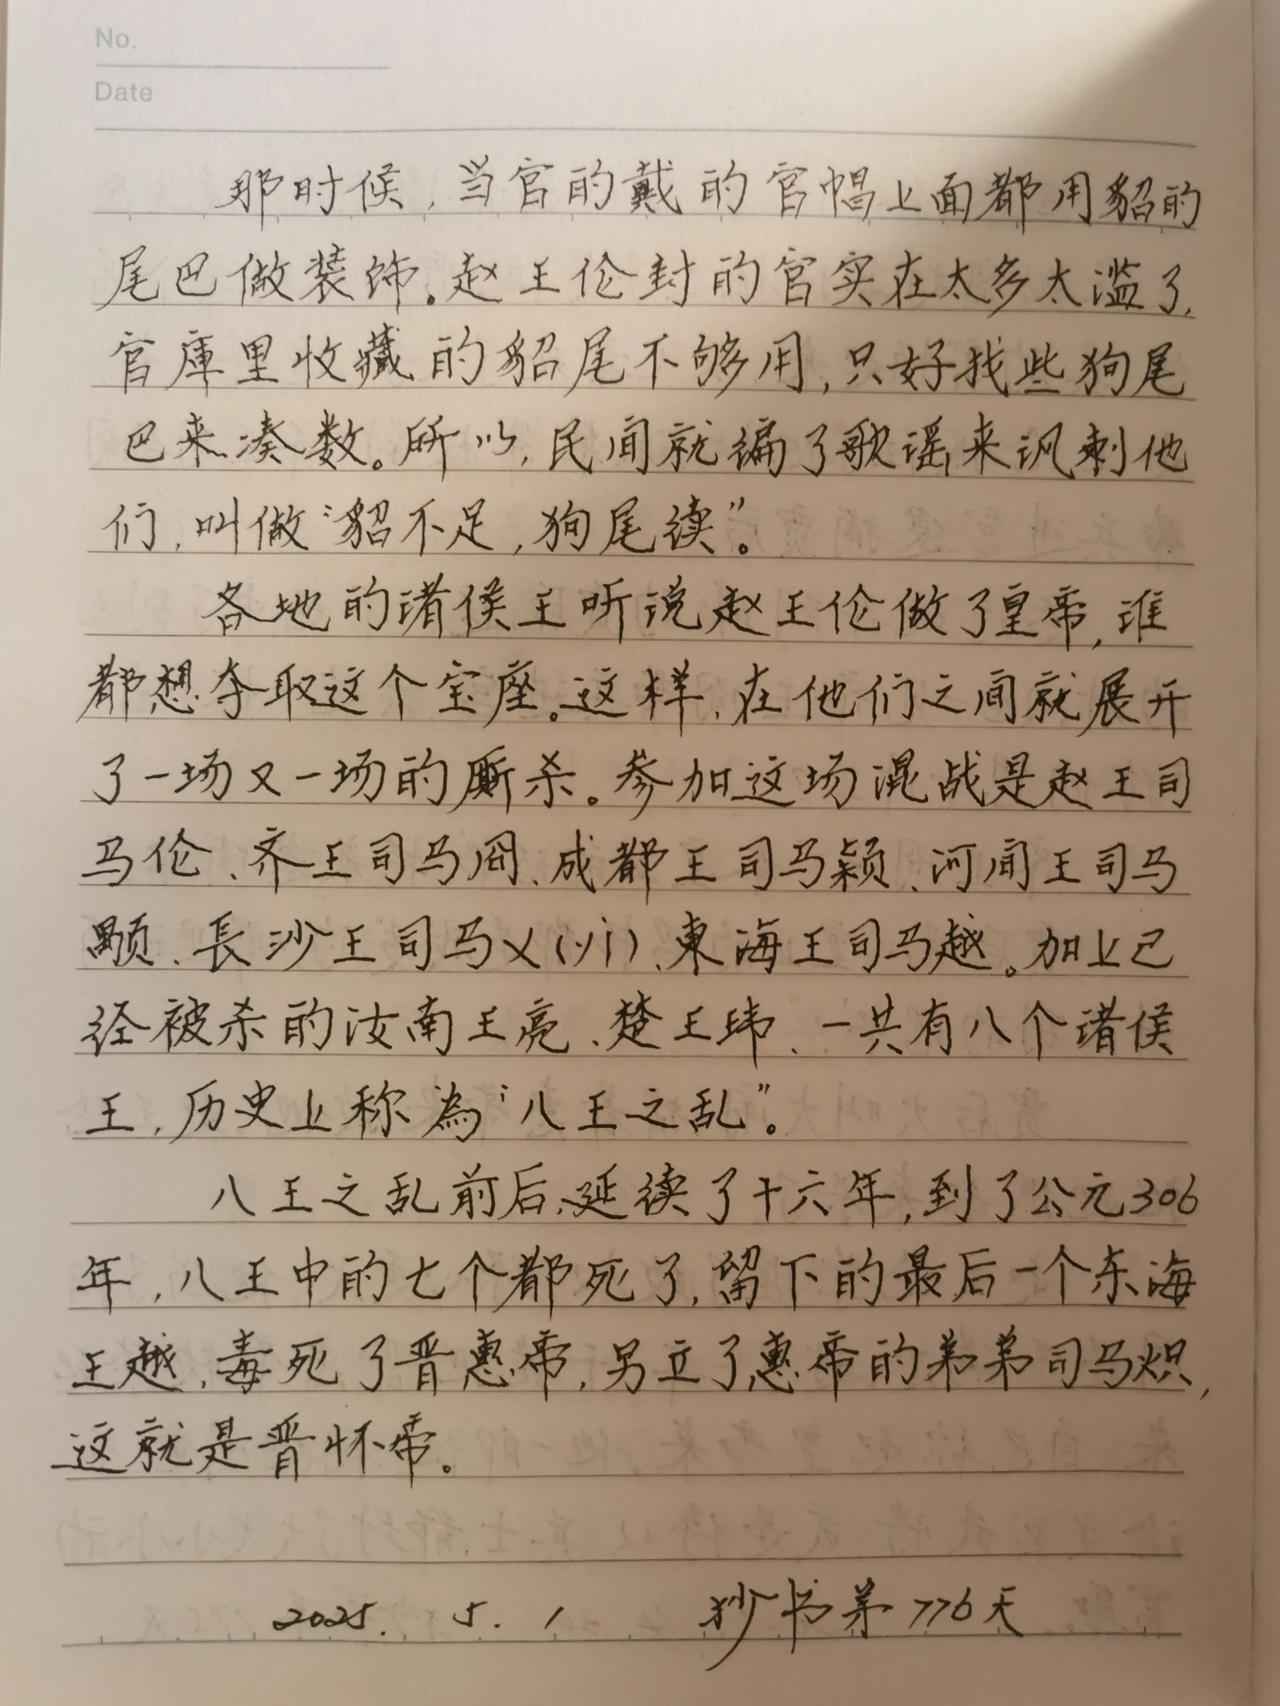 No.
Date
那时候,当官的戴的官帽上面都用貂的
尾巴做装饰。赵王伦封的官实在太多太滥了,
官庫里收藏的貂尾不够用,只好找些狗尾
巴来凑数。所以,民间就编了歌谣来讽刺他
们,叫做“貂不足,狗尾续”。
各地的诸侯王听说赵王伦做了皇帝,谁
都想夺取这个宝座。这样,在他们之间就展开
了一场又一场的厮杀。参加这场混战是赵王司
马伦、齐王司马冏、成都王司马颖、河间王司马
颙、長沙王司马乂(yì)、東海王司马越。加上已
经被杀的汝南王亮、楚王玮、一共有八个诸侯
王,历史上称為“八王之乱”。
八王之乱前后延续了十六年,到了公元306
年,八王中的七个都死了,留下的最后一个东海
王越,毒死了晋惠帝,另立了惠帝的弟弟司马炽,
这就是晋怀帝。
2025. 5. 1 抄书第776天